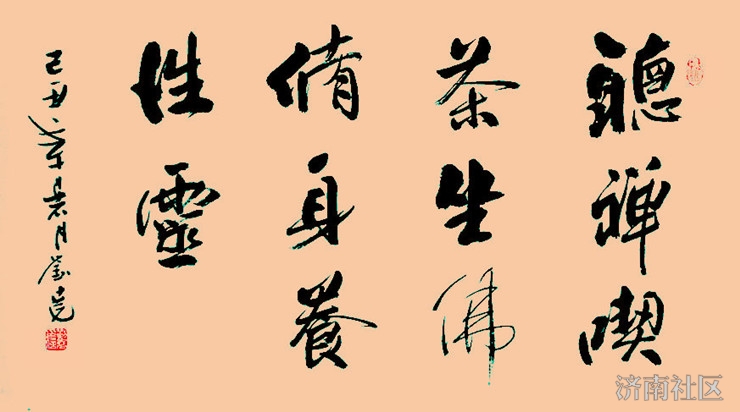 聽禪喫
茶坐佛
脩身養
性靈
己丑年月
济南社区